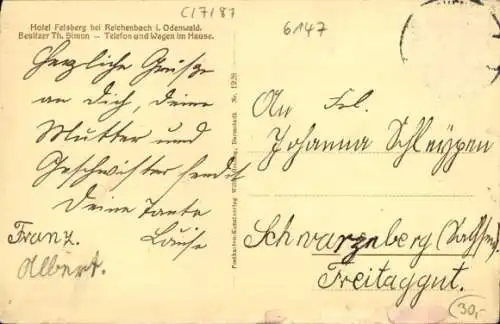 C17187
6147
Hotel Felsberg bei Reichenbach i. Odenwald.
Besitzer Th. Simon – Telefon und Wagen im Hause.
Herzliche Grüße
an Dich, Deine
Mutter und
Geschwister sendet
Deine Tante
Luise
Franz.
Albert.
An Frl.
Johanna Schleypen
Schwarzenberg (Sachsen)
Freitaggut.
30,-